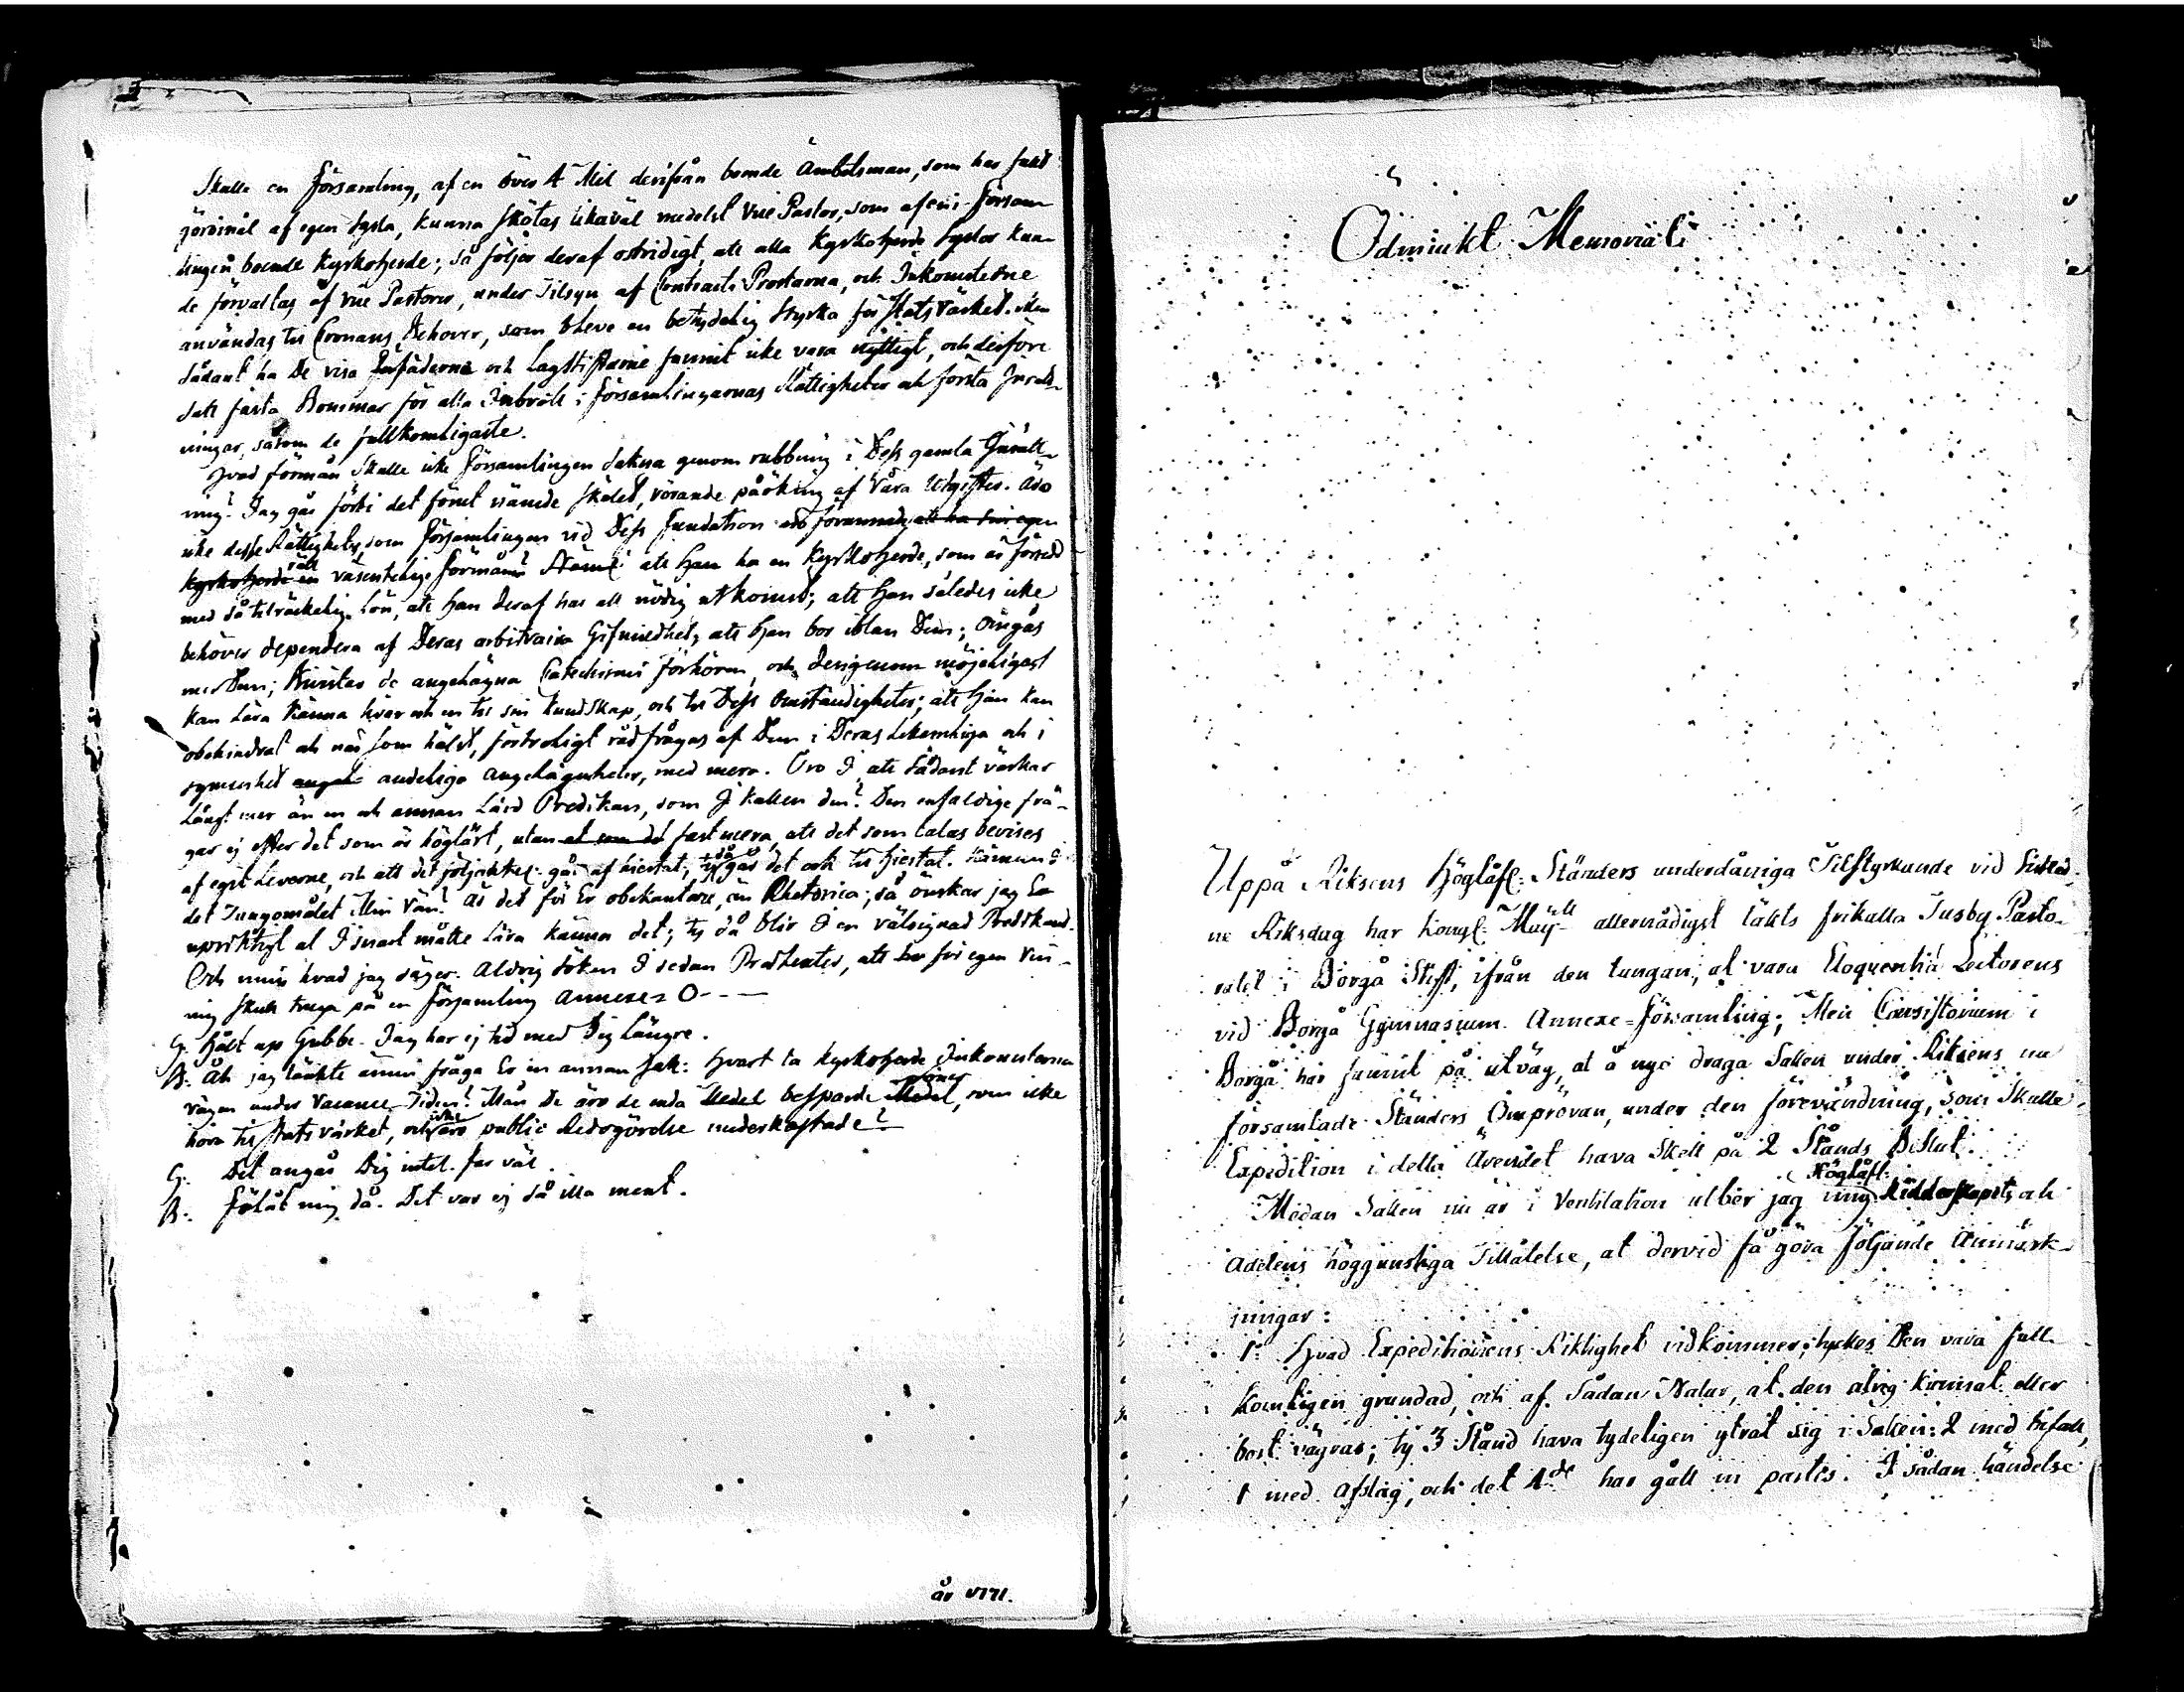 Skulle en Församling, af en över 4 Mil derifrån boende Ämbetsman, som har fullt
göromål af egen Sysla, kunna skötas likaväl medelst Vice Pastor, som af en i Försam-
lingen boende Kyrkoherde; så följer deraf ostridigt, att alla Kyrkoherde Syslor kun-
de förvaltas af Vice Pastorer, under Tilsyn af Contracts Prostarna, och Inkomsterne
användas til Cronans Behover, som bleve en betydelig styrka för Statsvärket. Men
sådant ha De visa Förfäderne och Lagstiftarne funnit icke vara nyttigt, och derföre
satt fasta Bommar för alla Inbrott i Församlingarnas Rättigheter och första Inrätt-
ningar, såsom de fullkomligaste.
Hvad förmån skulle icke Församlingen sakna genom rubbning i Dess gamla Inrätt-
ning? Jag går förbi det förut nämde skälet, rörande påökning af Våra Utgifter. Äro
icke desse Rättigheter, som Församlingen vid Dess Fundation att ha sin egen
Kyrkoherde en rätt väsentelig förmån? Nämǀ: att Han ha en Kyrkoherde, som är försedd
med så tilräckelig Lön, att Han deraf har all nödig utkomst; att Han således icke
behöver dependera af Deras arbitraira Gifmildhet; att Han bor iblan Dem; Omgås
med Dem; Bivistas de angelägna Catechismi förhören, och derigenom möjeligast
kan lära känna hvar och en til sin Kundskap, och til Dess Omständigheter; att Han kan
obehindrat och när som hälst, förtroligt rådfrågas af Dem i Deras Lekamliga och i
synnerhet andeliga angelägenheter, med mera. Tro I, att sådant värkar
långt mer än en och annan Lärd Predikan, som I kallen den? Den enfaldige frå-
gar ej efter det som är höglärt, utan fast mera, att det som talas bevises
af eget Leverne, och att det går af hiertat, så går det och til hiertat. Kännen I
det Tungomålet Min Vän? Är det för Er obekantare, än Rhetorica; så önskar jag Er
uprichtigt at I snart måtte lära känna det; ty då blir I en välsignad Predikand.
Och mins hvad jag säger. Aldrig söken I sedan Prætexter, att för egen Vin-
ning skull truga på en Församling Annexe = O - - -
G. Håll up Gubbe. Jag har ej tid med Dig längre.
B. Åh jag tänkte ännu fråga Er en annan Sak: Hvart ta Kyrkoherde Inkomsterna
vägen under Vacance Tiden? Mån De äro de enda besparde Medel, som icke
höra til Statsvärket, och icke äro public Redogörelse underkastade?
G. Det angår Dig intet. Far väl.
B. Förlåt mig då. Det var ej så illa ment.
år 1771.
Ödmiukt Memorial:
Uppå Riksens Höglofǀ: Ständers underdåniga Tilstyrkande vid Sistled-
ne Riksdag har Kongǀ: Maÿtt allernådigst täkts frikalla Tusby Pasto-
ratet i Borgå Stift, ifrån den tungan, at vara Eloquentiæ Lectorens
vid Borgå Gymnasium Annexe-Församling; Men Consistorium i
Borgå har funnit på utväg, at å nyo draga Saken under Riksens nu
församlade Ständers Ompröfvan, under den förevändning, som skulle
Expedition i detta Ärendet hava Skett på 2 Stånds Beslut.
Medan Saken nu är i Ventilation utber jag mig Höglofl: Ridderskapets och
Adelens höggunstiga Tillåtelse, at dervid få göra följande Anmärk-
ningar:
1o Hvad Expeditionens Riktighet vidkommer; tyckes Den vara full-
komligen grundad, och af Sådan Natur, at den alrig kunnat eller
bort vägras; ty 3 Stånd hava tydeligen ytrat sig i Saken: 2 med bifall,
1 med afslag, och det 4de har gått in partes. I sådan händelse